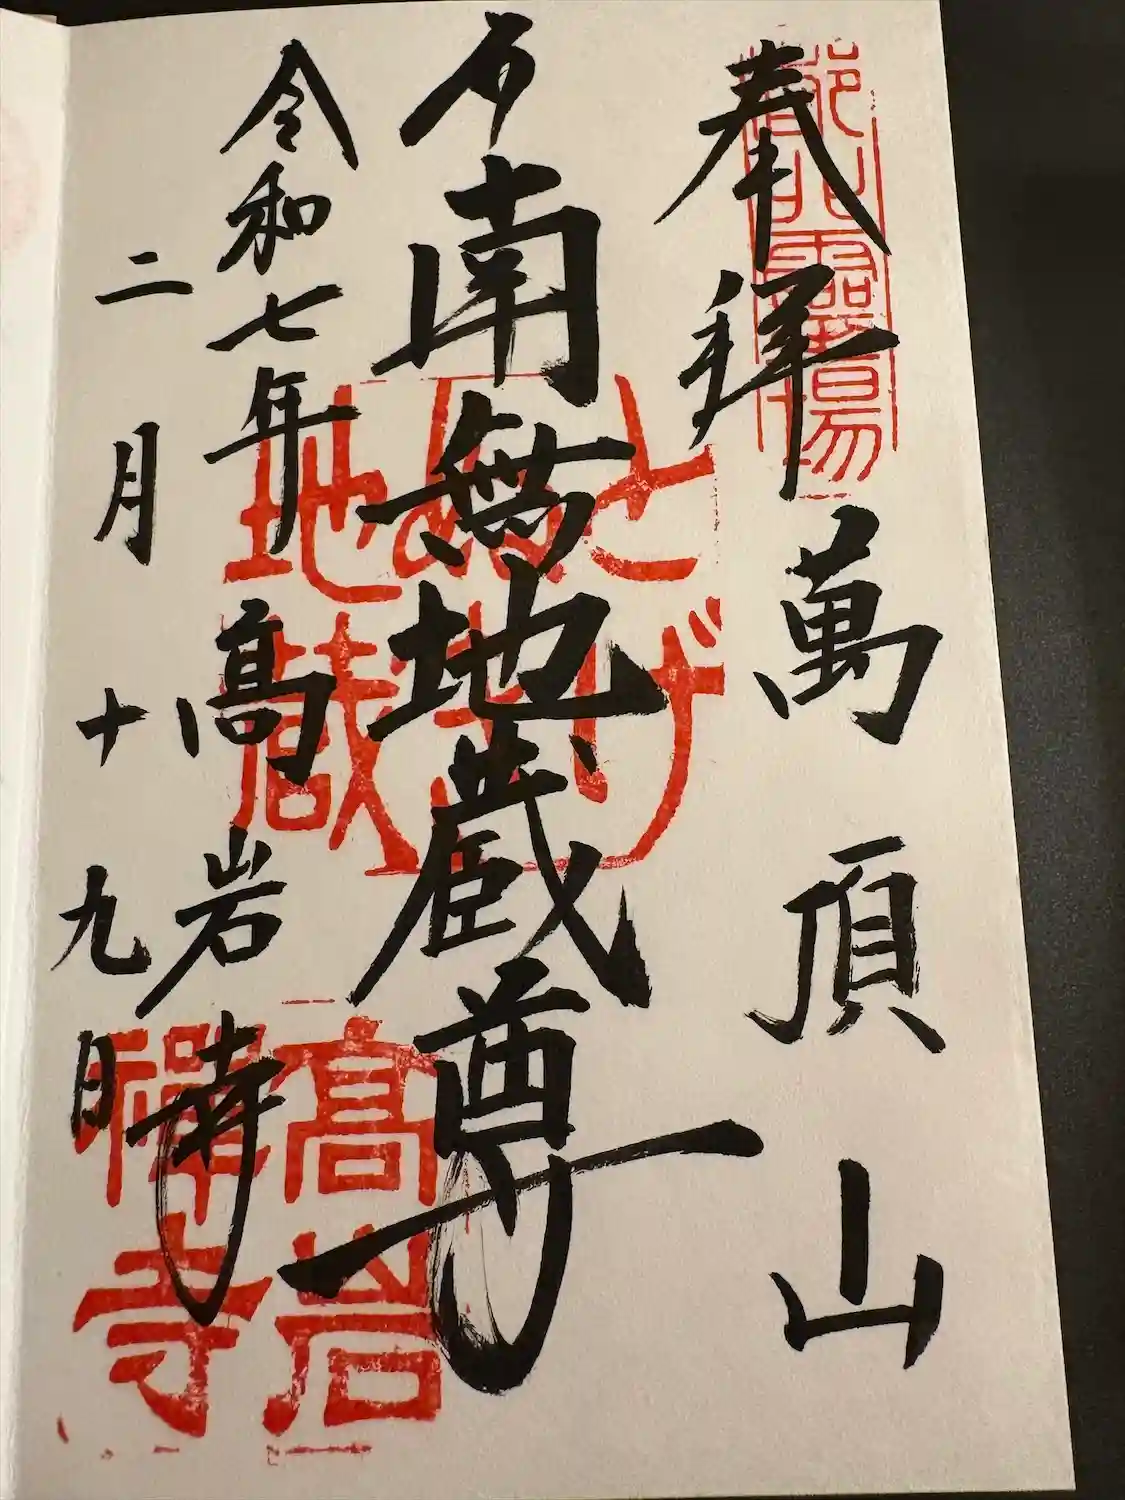 奉拝 萬頂山
南無地蔵尊
令和七年 髙岩寺
二月十九日
とげ
ぬき
地蔵
髙岩
禪寺